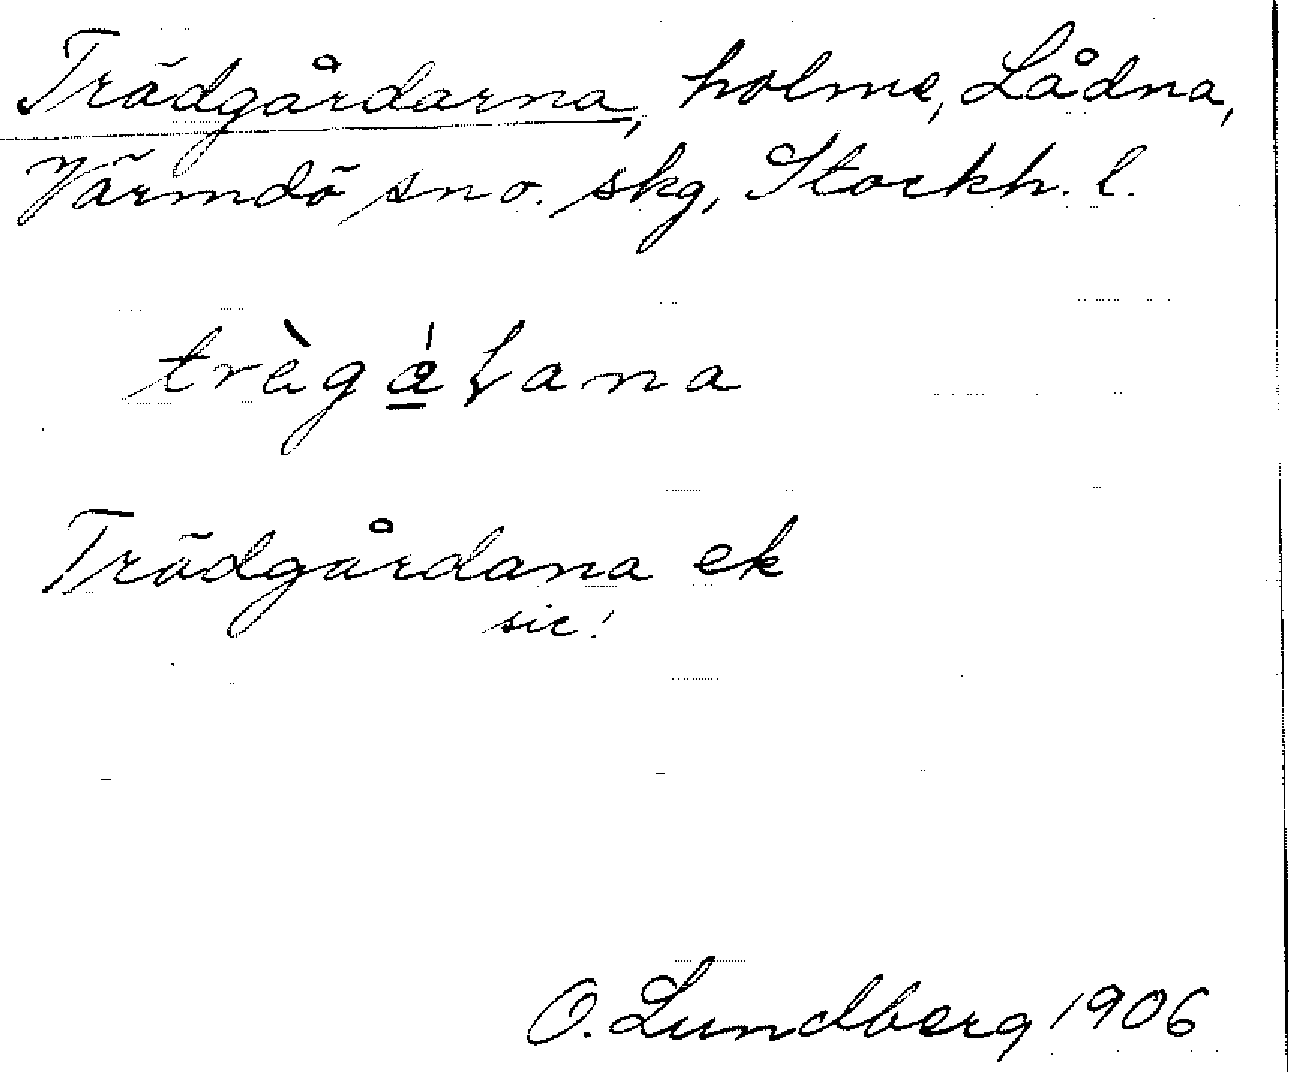 Trädgårdarna, holme, Lådna,
Värmdö sn o. skg, Stockh. l.
Trädgårdana ek
sic!
O. Lundberg 1906